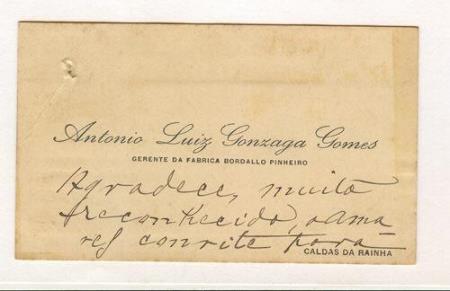 Antonio Luiz Gonzaga Gomes
GERENTE DA FABRICA BORDALLO PINHEIRO
Agradece, muito
reconhecido, o ama
vel convite para
CALDAS DA RAINHA